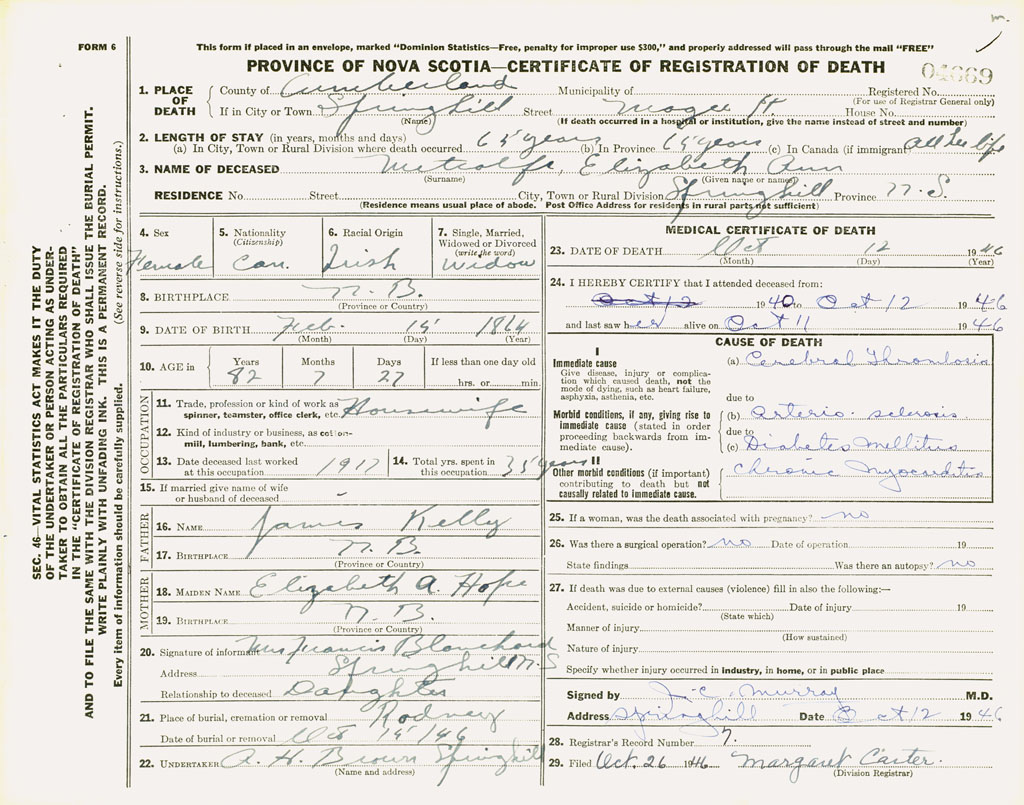 FORM 6
This form if placed in an envelope, marked "Dominion Statistics—Free, penalty for improper use $300," and properly addressed will pass through the mail "FREE"
PROVINCE OF NOVA SCOTIA—CERTIFICATE OF REGISTRATION OF DEATH
04669
1. PLACE OF DEATH County of Cumberland Municipality of Registered No.
(For use of Registrar General only)
If in City or Town Springhill Street House No.
(Name) (If death occurred in a hospital or institution, give the name instead of street and number)
2. LENGTH OF STAY (in years, months and days)
(a) In City, Town or Rural Division where death occurred 65 years (b) In Province 65 years (c) In Canada (if immigrant) all her life
3. NAME OF DECEASED Metcalfe, Elizabeth Ann
(Surname) (Given name or names)
RESIDENCE No. Street City, Town or Rural Division Springhill Province N.S.
(Residence means usual place of abode. Post Office Address for residents in rural parts not sufficient)
4. Sex Female
5. Nationality (Citizenship) Can.
6. Racial Origin Irish
7. Single, Married, Widowed or Divorced (write the word) Widow
8. BIRTHPLACE N.B.
(Province or Country)
9. DATE OF BIRTH Feb. 15 1864
(Month) (Day) (Year)
10. AGE in Years 82 Months 7 Days 27 If less than one day old hrs. or min.
OCCUPATION
11. Trade, profession or kind of work as spinner, teamster, office clerk, etc. Housewife
12. Kind of industry or business, as cotton-mill, lumbering, bank, etc.
13. Date deceased last worked at this occupation 1917
14. Total yrs. spent in this occupation 35 years
15. If married give name of wife or husband of deceased -
FATHER
16. NAME James Kelly
17. BIRTHPLACE N.B.
(Province or Country)
MOTHER
18. MAIDEN NAME Elizabeth A. Hope
19. BIRTHPLACE N.B.
(Province or Country)
20. Signature of informant Mrs Francis Blanchard
Address Springhill N.S
Relationship to deceased Daughter
21. Place of burial, cremation or removal Rodney
Date of burial or removal Oct 15/46
22. UNDERTAKER A. H. Brown Springhill
(Name and address)
MEDICAL CERTIFICATE OF DEATH
23. DATE OF DEATH Oct 12 1946
(Month) (Day) (Year)
24. I HEREBY CERTIFY that I attended deceased from:
Oct 12 1940 to Oct 12 1946
and last saw her alive on Oct 11 1946
CAUSE OF DEATH
I
Immediate cause
Give disease, injury or complication which caused death, not the mode of dying, such as heart failure, asphyxia, asthenia, etc.
(a) Cerebral Thrombosis
due to
Morbid conditions, if any, giving rise to immediate cause (stated in order proceeding backwards from immediate cause).
(b) Arterio-sclerosis
due to
(c) Diabetes Mellitus
II
Other morbid conditions (if important) contributing to death but not causally related to immediate cause.
Chronic Myocarditis
25. If a woman, was the death associated with pregnancy? no
26. Was there a surgical operation? no Date of operation 19
State findings Was there an autopsy? no
27. If death was due to external causes (violence) fill in also the following:—
Accident, suicide or homicide? Date of injury 19
(State which)
Manner of injury
(How sustained)
Nature of injury
Specify whether injury occurred in industry, in home, or in public place
Signed by J. C. Murray M.D.
Address Springhill Date Oct 12 1946
28. Registrar's Record Number 7.
29. Filed Oct. 26 1946 Margaret Carter.
(Division Registrar)
SEC. 46—VITAL STATISTICS ACT MAKES IT THE DUTY
OF THE UNDERTAKER OR PERSON ACTING AS UNDER-
TAKER TO OBTAIN ALL THE PARTICULARS REQUIRED
IN THE "CERTIFICATE OF REGISTRATION OF DEATH"
AND TO FILE THE SAME WITH THE DIVISION REGISTRAR WHO SHALL ISSUE THE BURIAL PERMIT.
WRITE PLAINLY WITH UNFADING INK. THIS IS A PERMANENT RECORD.
Every item of information should be carefully supplied. (See reverse side for instructions.)